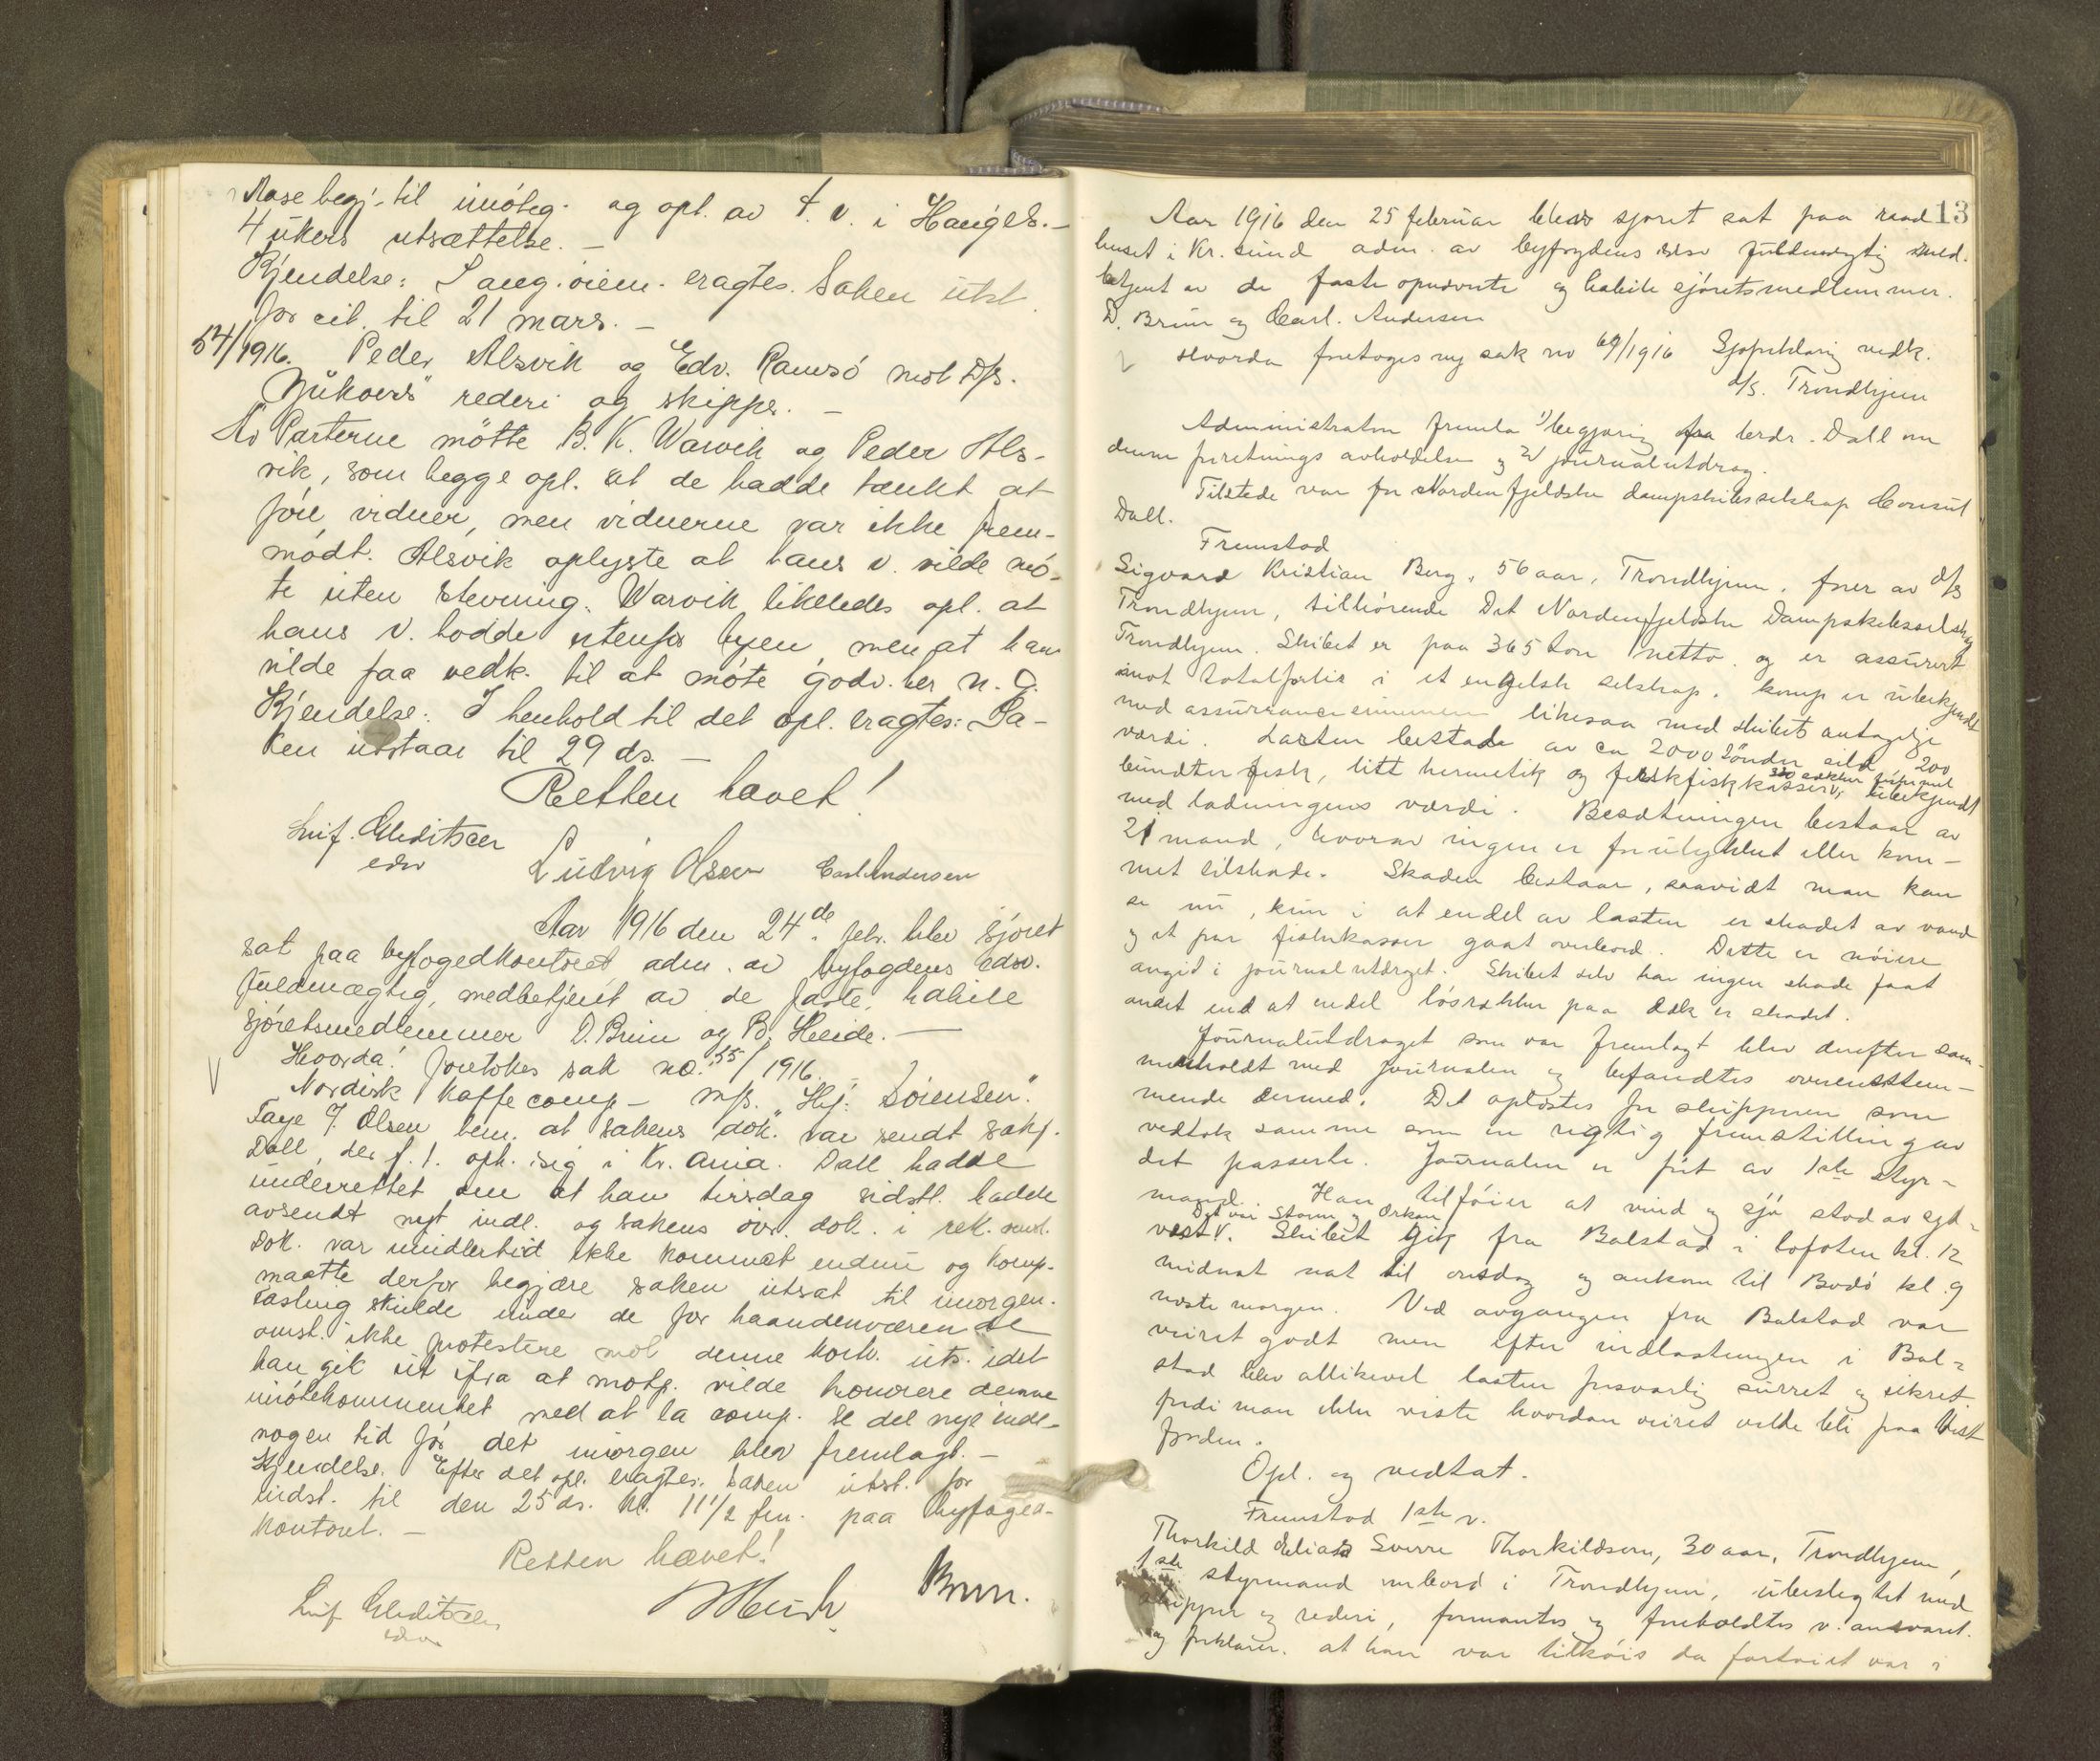 Aase begj. til imóteg. og opt. av t. v. i Hauges.-
4 ukers utsættelse. -
Kjendelse: S ang. óiem. eragtes. Saken utst.
for cit. til 21 mars. -
54/1916. Peder Alsvik og Edv. Ramsó mot D/s.
rederi og skipper. -
Av Parterne mötte B. K. Warvik og Peder Als-
vik, som begge opl. at de hadde tænkt at
fóre vidner, men vidnerne var ikke frem-
módt. Alsvik oplyste at hans v. vilde mó-
te uten stevning. Warvik likeledes opl. at
hans v. bodde utenfor byen, men at han
vilde faa vedk. til at móte godv. her n. G.
Kjendelse: I henhold til det opl. eragtes: Sa-
ken utstaar til 29 ds. -
Retten hævet!
Leif Gleditsch
edsv
Ludvig Olsen Carl Andersen
Aar 1916 den 24de febr. blev sjóret
sat paa byfogedkontoret adm. av byfogdens edsv.
fuldmægtig, medbetjent av de faste, habile
sjóretsmedlemmer D. Brun og B. Heide. -
V Hvorda! foretokes sak no. 55/1916. -
Nordisk Kaffecomp - m/s. "Hj. Sórensen".
Faye J. Olsen bem. at sakens dok. var sendt sakf.
Dall, der f. t. oph. sig i Kr.ania. Dall hadde
underrettet om at han tirsdag sidstl. hadde
avsendt nyt indl. og sakens óvr. dok. i rek.
Dok. var imidlertid ikke kommet endnu og komp.
maatte derfor begjære saken utsat til imorgen.
Fasting skulde under de for haandenværende
omst. ikke protestere mot denne kortv. uts. idet
han gik ut ifra at motp. vilde honorere denne
imótekommenhet med at la comp. se det nye indl.
nogen tid fór det imorgen blev fremlagt. -
Kjendelse. Efter det opl. eragtes: Saken utst. for
indst. til den 25 ds. kl. 11 1/2 fm. paa byfoged-
kontoret. -
Retten hævet!
Leif Gleditsch
edsv.
BHeide Brun.
13
Aar 1916 den 25 februar blev sjóret sat paa raad
huset i Kr.sund adm. av byfogdens edsv fuldmegtig med.
betjent av de faste opnævnte og habile sjóretsmedlemmer.
D. Brun og Carl. Andersen
V Hvorda foretoges ny sak no 69/1916 Sjoforklaring vedk.
d/s. Trondhjem
Administrator fremla 1) begjæring fra berdr. Dall om
denne forretnings avholdelse og 2) journalutdrag.
Tilstede var for Nordenfjeldske dampskibsselskap Consul
Dall.
Fremstod
Sigvard Kristian Berg, 56 aar, Trondhjem, förer av d/s
Trondhjem, tilhórende Det Nordenfjeldske Dampskibsselskap
Trondhjem. Skibet er paa 365 ton netto. og er assurert
imot totalforlis i et engelsk selskap. komp er ubekjendt
med assurancesummen likesaa med skibets antagelige
værdi. Lasten bestod av ca 2000 tónder sild 200
bundter fisk, litt hermetik og ferskfiskkasser, 350 sækker fiskemel ubekjendt
med ladningens værdi. Besætningen bestaar av
21 mand, hvorav ingen er forulykket eller kom-
met tilskade. Skaden bestaar, saavidt man kan
se nu, kun i at endel av lasten er skadet av vand
og et par fiskekasser gaat overbord. Dette er nóiere
angid i journalutdraget. Skibet selv har ingen skade faat
andet end at endel lósrekker paa dæk er skadet.
Journalutdraget som var fremlagt blev derefter sam-
menholdt med journalen og befandtes overensstem-
mende dermed. Det oplæstes for skipperen som
vedtok samme som en rigtig fremstilling av
det passerte. Journalen er fórt av 1ste styr-
mand. Han tilfóier at vind og sjó stod av syd-
vest V. Det var Storm og Orkan Skibet gik fra Balstad i Lofoten kl. 12
midnat nat til onsdag og ankom til Bodó kl. 9
næste morgen. Ved avgangen fra Balstad var
veiret godt men efter indlastningen i Bal-
stad blev allikevel lasten forsvarlig surret og sikret
fordi man ikke viste hvordan veiret vilde bli paa Vest
fjorden.
Opl. og vedtat.
Fremstod 1ste v.
Thorkild Elias Sverre Thorkildsen, 30 aar, Trondhjem,
1ste styrmand ombord i Trondhjem, ubeslegtet med
skipper og rederi, formantes og foreholdtes v. ansvaret.
og forklarer. at han var tilkóis da fartóiet var i